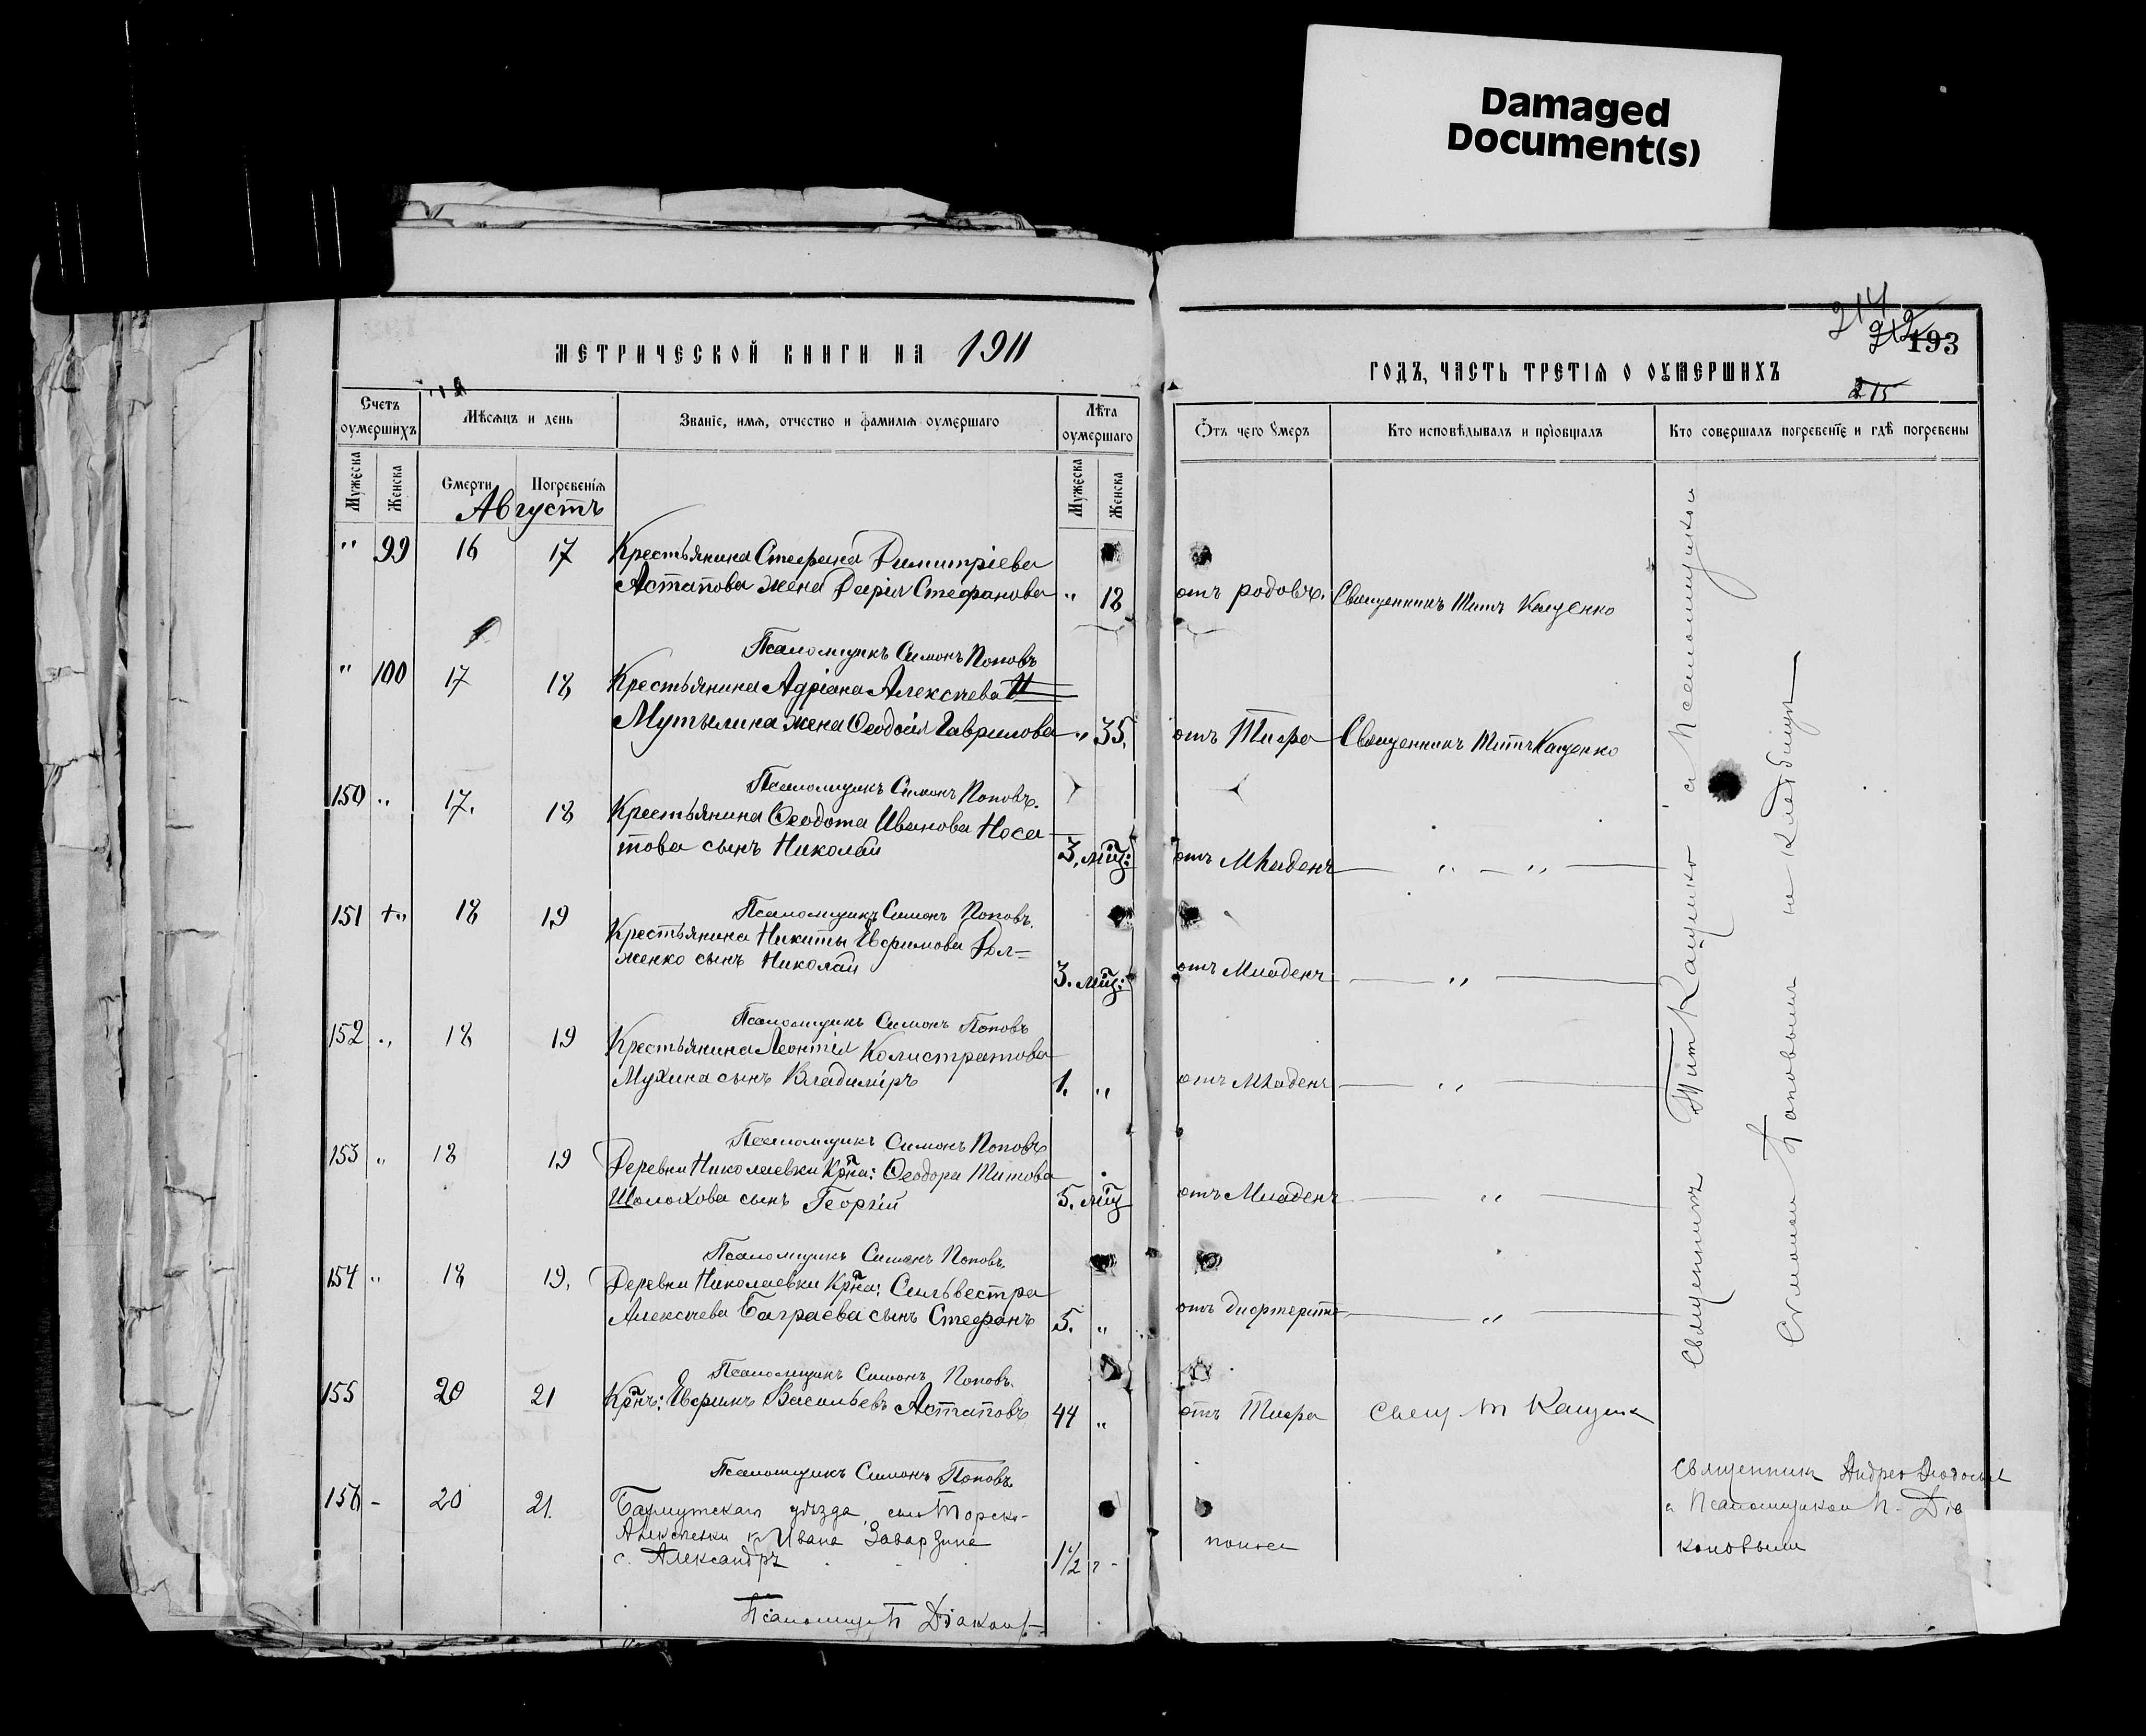 Damaged
Document(s)
МЕТРИЧЕСКОЙ КНИГИ НА 1911
Счетъ оумершихъ
Мѣсяцъ и день
Званіе, имя, отчество и фамилія оумершаго
Лѣта оумершаго
Мужеска
Женска
Смерти
Погребенія
Мужеска
Женска
Августъ
" 99 16 17 Крестьянина Стефана Димитріева
Астапова жена Дарія Стефанова " 18
Псаломщикъ Симонъ Поповъ
" 100 17 18 Крестьянина Адріана Алексѣева
Мутылина жена Ѳеодосія Гаврилова " 35.
Псаломщикъ Симонъ Поповъ.
150 " 17. 18 Крестьянина Ѳеодота Иванова Носа
това сынъ Николай 3. мц:
Псаломщикъ Симонъ Поповъ.
151 +" 18 19 Крестьянина Никиты Ефимова Дол=
женко сынъ Николай 3. мц:
Псаломщикъ Симонъ Поповъ
152 " 18 19 Крестьянина Леонтія Колистратова
Мухина сынъ Владиміръ 1. "
Псаломщикъ Симонъ Поповъ
153 " 18 19 Деревни Николаевки Крна: Ѳеодора Титова
Шолохова сынъ Георгій 5. мц
Псаломщикъ Симонъ Поповъ.
154 " 18 19. Деревни Николаевки Крна: Сильвестра
Алексѣева Баграева сынъ Стефанъ 5. "
Псаломщикъ Симонъ Поповъ.
155 20 21 Крнъ: Ефимъ Васильевъ Астаповъ 44 "
Псаломщикъ Симонъ Поповъ.
156 - 20 21. Бахмутскаго уѣзда, села Торско-
Алексѣевки к. Ивана Заварзина
с. Александръ 1 1/2
Псаломщ. П Діаконовъ
214
212
193
215
ГОДЪ, ЧАСТЬ ТРЕТІЯ О ОУМЕРШИХЪ
Отъ чего умеръ
Кто исповѣдывалъ и пріобщалъ
Кто совершалъ погребеніе и гдѣ погребены
отъ родовъ. Священникъ Титъ Кащенко
отъ Тифа Священникъ Титъ Кащенко
отъ Младенч " — "
отъ Младенч "
отъ Младенч "
отъ Младенч "
отъ дифтерита "
отъ Тифа Свящ Т Кащенко
поноса
Священникъ Титъ Кащенко съ Псаломщикомъ
Симономъ Поповымъ на кладбищѣ
Священникъ Андрей
с Псаломщикомъ П. Діа
коновымъ